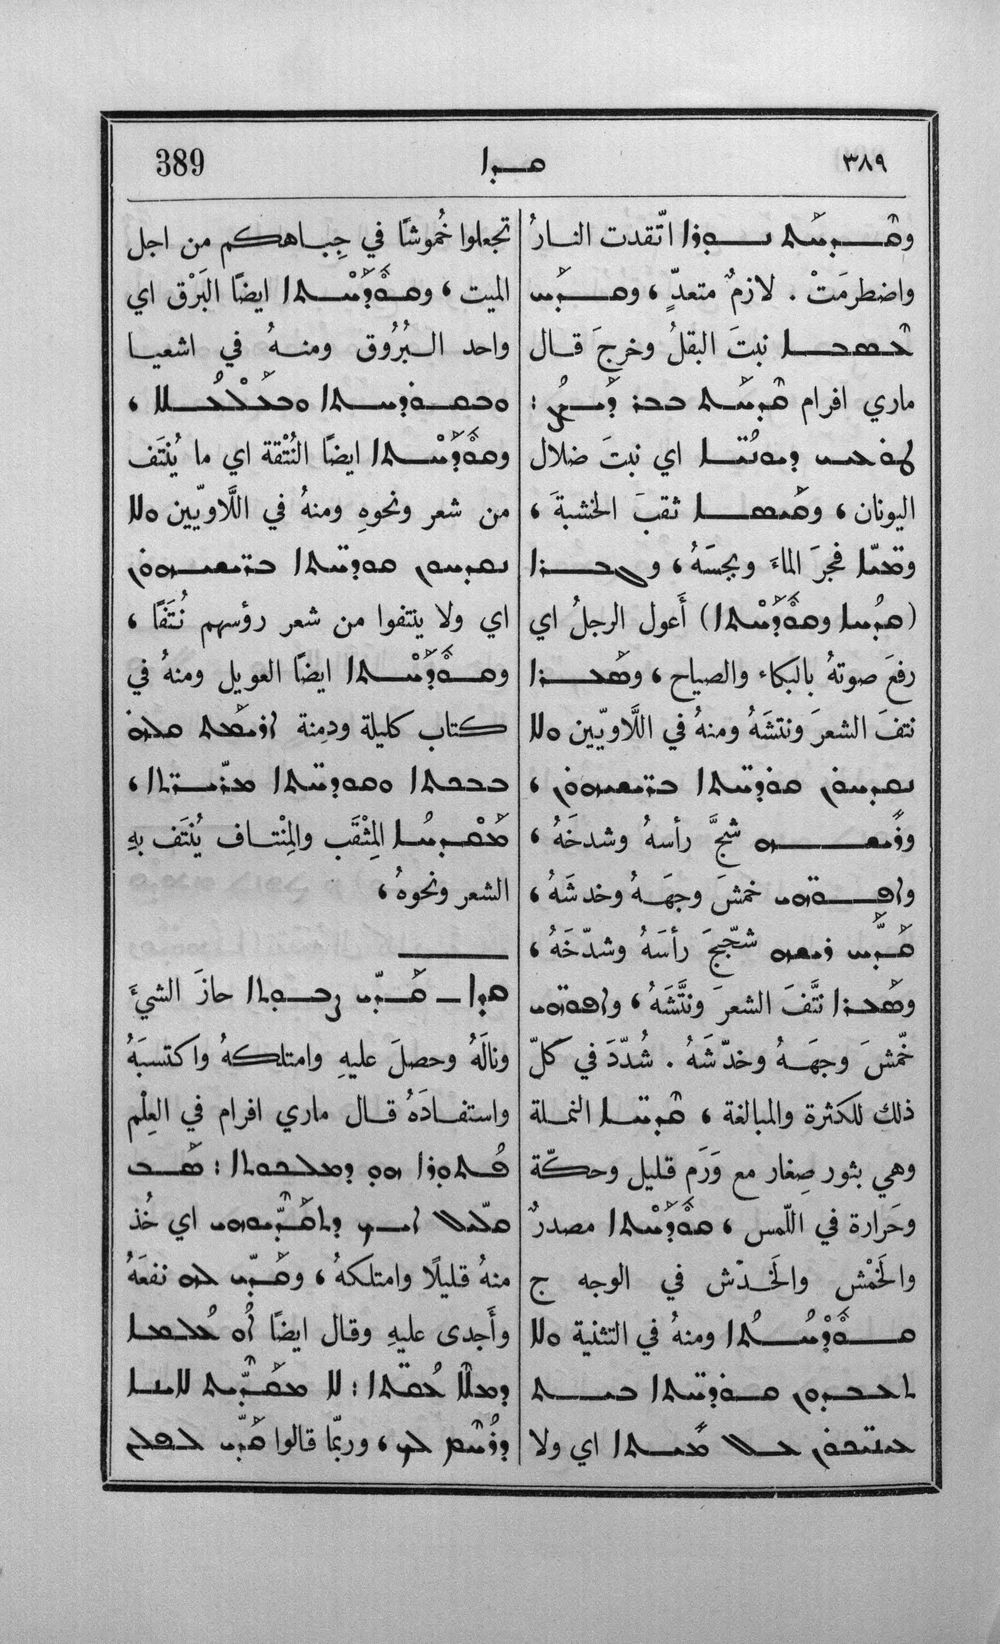 389 ܩܕܐ ٣٨٩
ܘܩܶܕܚܰܬ ܢܘܪܐ اتّقدت النارُ
واضطرمَتْ . لازمٌ متعدٍّ ، ܘܩܕܰܚ
ܥܣܒܐ نبتَ البقلُ وخرجَ قال
ماري افرام ܩܶܕܚܰܬ :
ܕܝܘܢܝܐ اي نبتَ ضلال
اليونان ، ܘܩܰܝܣܐ ثقبَ الخشبةَ ،
ܘܡܝܐ فجرَ الماءَ وبجسَهُ ، ܘܓܒܪܐ
(ܩܕܳܚܐ ܘܩܘܕܚܬܐ) أَعول الرجلُ اي
رفعَ صوتهُ بالبكاء والصياح ، ܘܣܰܥܪܐ
نتفَ الشعرَ ونتشَهُ ومنهُ في اللَّاويّين ܘܠܐ
ܢܩܕܚܘܢ ܩܘܕܚܬܐ ܒܪܝܫܗܘܢ ،
ܘܪܺܝܫܗ شجَّ رأسهُ وشدخَهُ ،
ܘܐܦܘܗܝ خمشَ وجهَهُ وخدشَهُ ،
ܩܰܕܰܚ ܪܝܫܗ شجّجَ رأسَهُ وشدّخَهُ ،
ܘܣܰܥܪܐ نتَّفَ الشعرَ ونتَّشَهُ ، ܘܐܦܘܗܝ
خمّشَ وجهَهُ وخدّشَهُ . شُدّدَ في كلّ
ذلك للكثرة والمبالغة ، ܩܶܕܚܐ النملة
وهي بثور صِغار مع وَرَم قليل وحكّة
وحَرارة في اللّمس ، ܩܘܕܚܬܐ مصدرٌ
والخَمْش والخَدْش في الوجه ج
ܩܘܕܚܬܐ ومنهُ في التثنية ܘܠܐ
ܬܥܒܕܘܢ ܩܘܕܚܬܐ ܒܝܬ
ܥܝܢܝܟܘܢ ܥܠ ܡܺܝܬܐ اي ولا
تجعلوا خُموشًا في جِباهكم من اجل
الميت ، ܘܩܘܕܚܬܐ ايضًا البَرْق اي
واحد البُرُوق ومنهُ في اشعيا
ܘܒܩܘܕܚܬܐ ܘܒܥܰܠܥܳܠܐ ،
ܘܩܘܕܚܬܐ ايضًا النُتْفة اي ما يُنتَف
من شعر ونحوهِ ومنهُ في اللَّاويّين ܘܠܐ
ܢܩܕܚܘܢ ܩܘܕܚܬܐ ܒܪܝܫܗܘܢ
اي ولا ينتفوا من شعر رؤسهم نُتَفًا ،
ܘܩܘܕܚܬܐ ايضًا العويل ومنهُ في
كتاب كليلة ودِمنة ܐܪܝܡܰܬ ܩܠܗ
ܒܒܟܬܐ ܘܩܘܕܚܬܐ ܡܪܝܪܬܐ ،
ܡܰܩܕܚܳܐ المِثْقَب والمِنْتاف يُنتَف بهِ
الشعر ونحوهُ ،
ܩܕܐ ــ ܩܰܕܝ ܨܒܘܬܐ حازَ الشيَّ
ونالَهُ وحصلَ عليهِ وامتلكهُ واكتسبَهُ
واستفادَهُ قال ماري افرام في العِلْم
ܗܘ ܕܡܠܟܘܬܐ : ܣܰܒ
ܩܠܝܠ ܐܝܟ ܕܬܩܰܕܝܘܗܝ اي خُذ
منهُ قليلًا وامتلكهُ ، ܘܩܰܕܝ ܠܗ نفعَهُ
وأَجدى عليهِ وقال ايضًا ܐܘ ܥܳܠܡܐ
ܕܡܠܐ ܥܳܩܬܐ : ܠܐ ܡܩܰܕܝܬ ܠܐܝܢܐ
ܕܪܳܚܶܡ ܠܟ ، وربّما قالوا ܩܰܕܝ